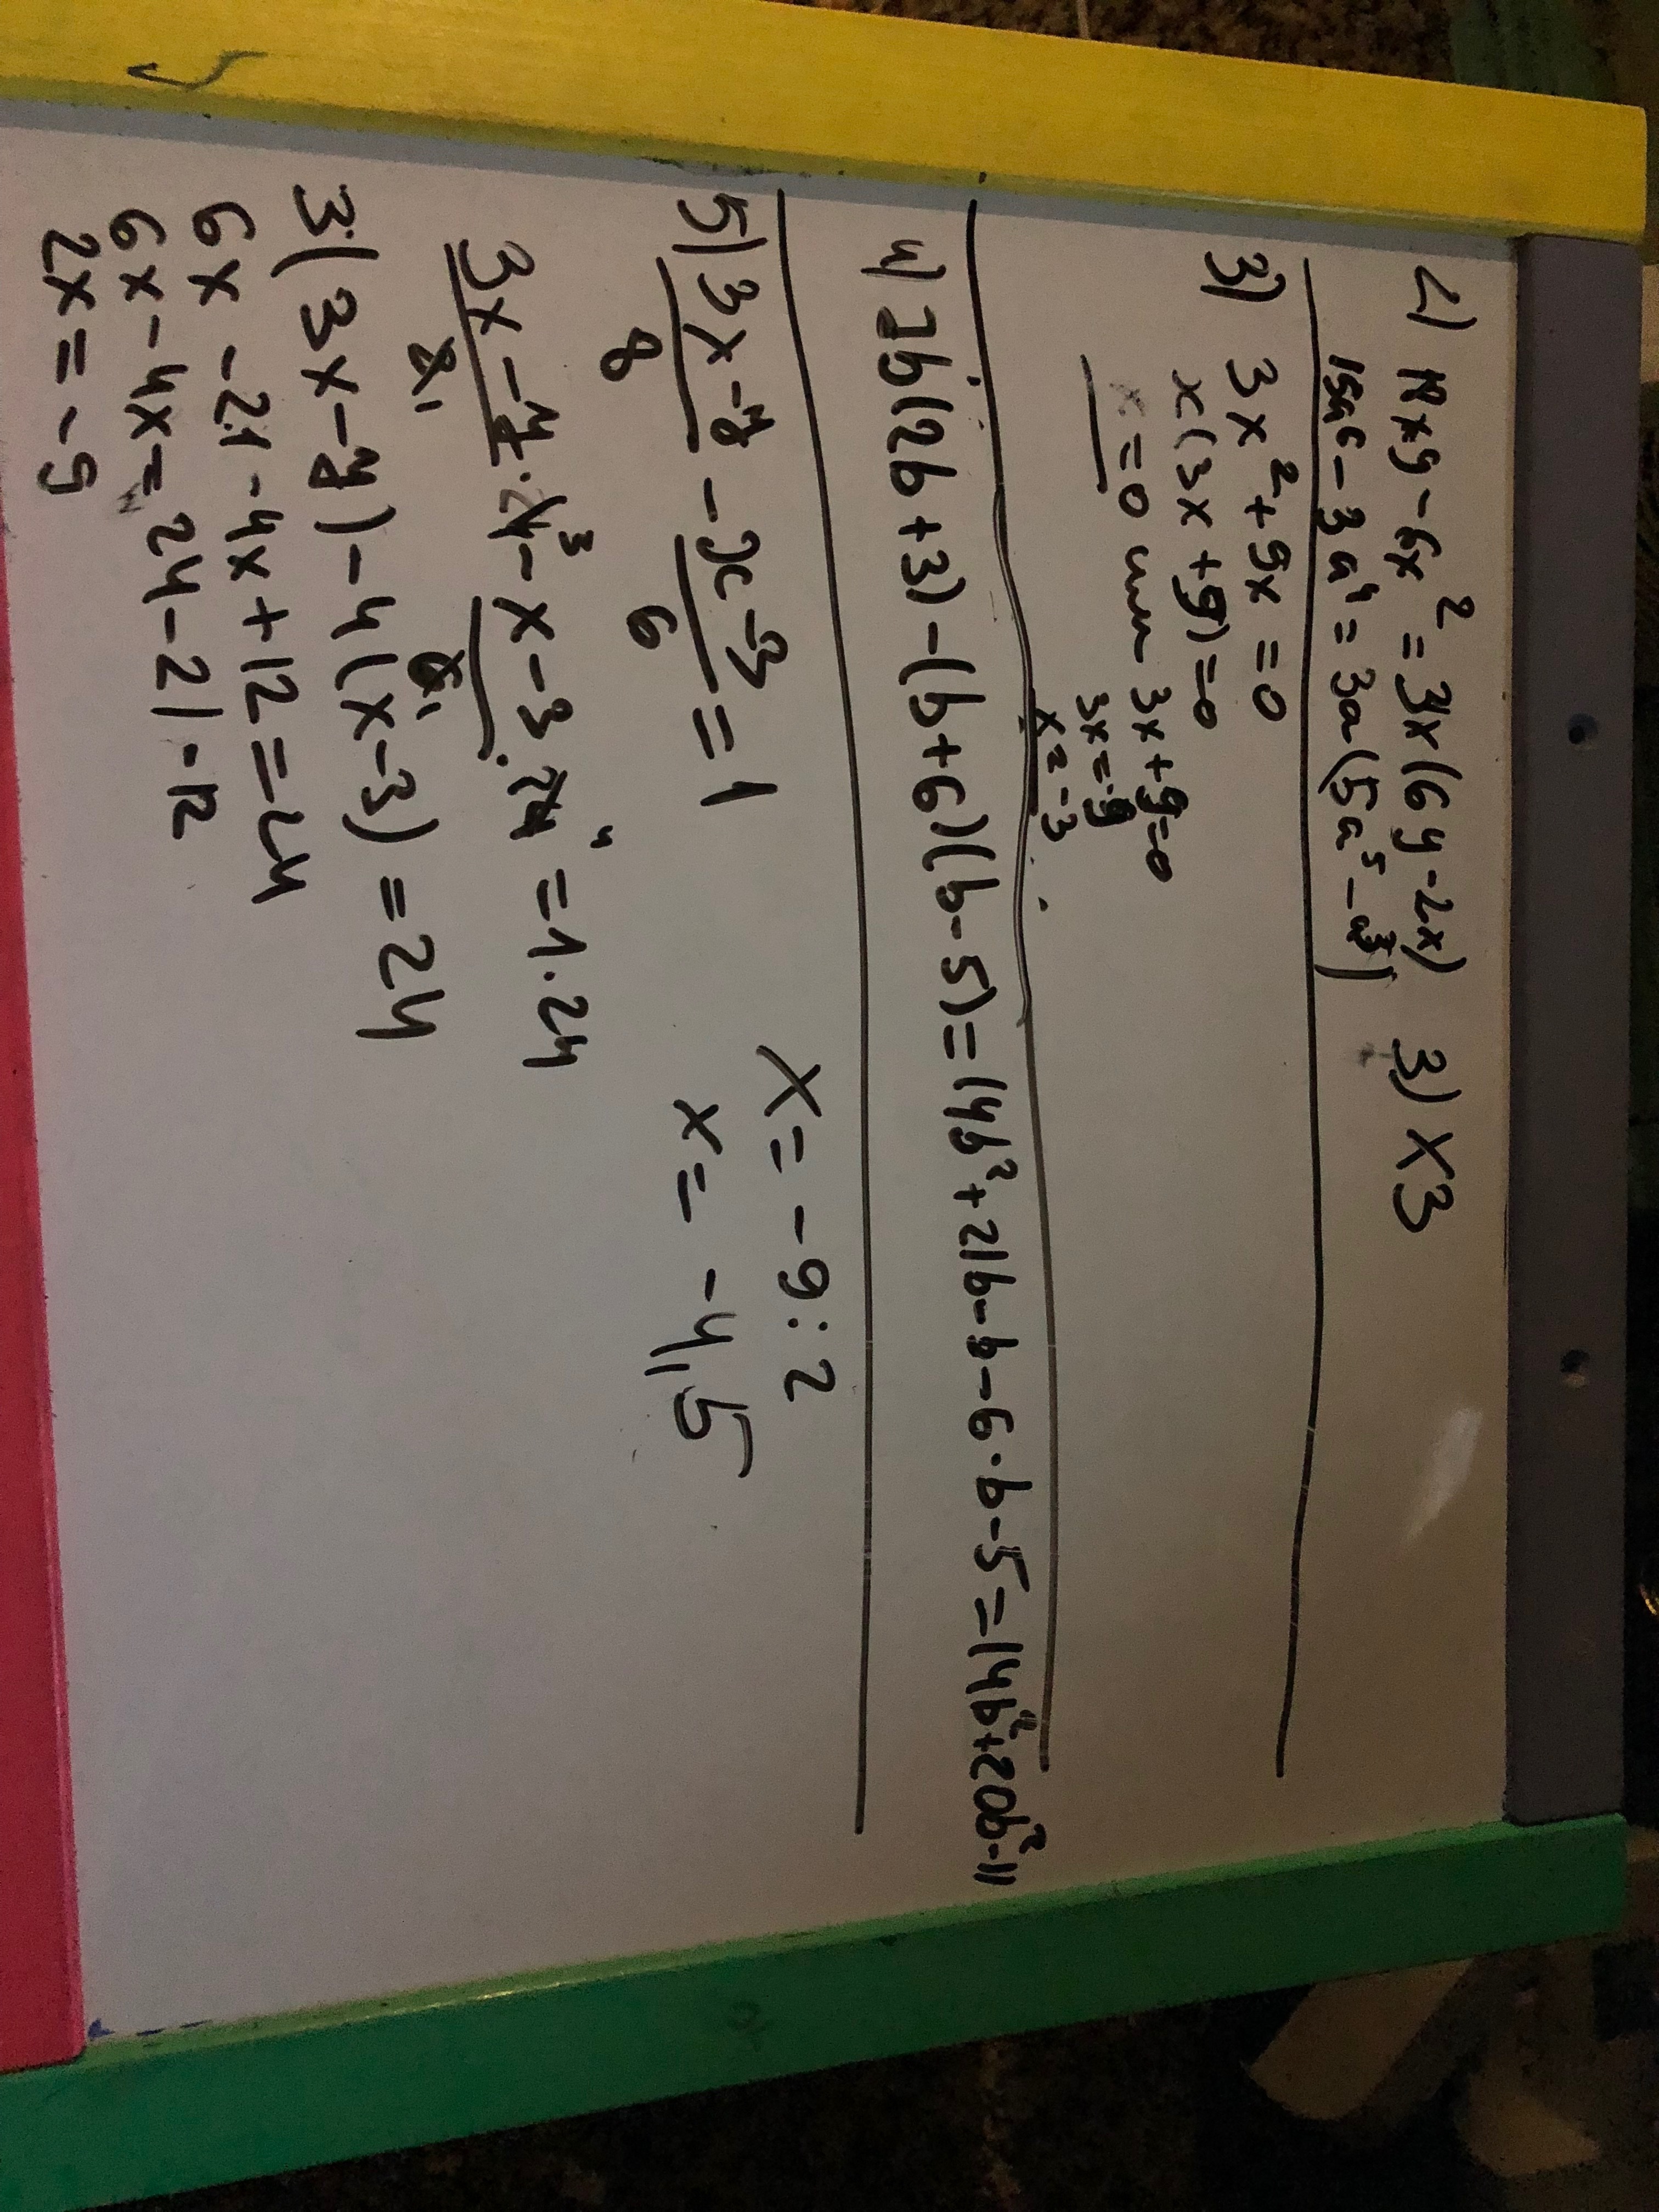 2) 18xy - 6x² = 3x(6y - 2x) 3) x3
15a⁶ - 3a⁴ = 3a(5a⁵ - a³)
3) 3x² + 9x = 0
x(3x + 9) = 0
x = 0 или 3x + 9 = 0
3x = -9
x = -3
4) 7b(2b + 3) - (b + 6)(b - 5) = 14b² + 21b - b - 6 · b - 5 = 14b² + 20b² - 11
5) 3x - 7 / 8 - x - 3 / 6 = 1
3x - 7 / 8₁ · 24³ - x - 3 / 6₁ · 24⁴ = 1 · 24
3(3x - 7) - 4(x - 3) = 24
6x - 21 - 4x + 12 = 24
6x - 4x = 24 - 21 - 12
2x = -9
x = -9 : 2
x = -4,5